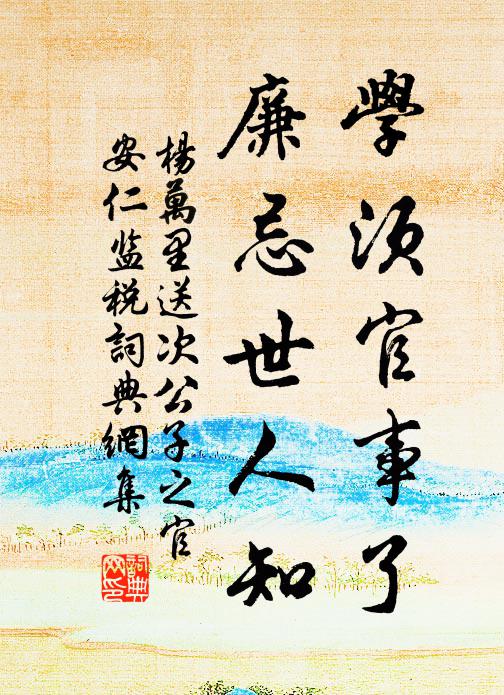 學須官事了
廉忌世人知
楊萬里送次公子之官
安仁监税詞典網集
詞典网印